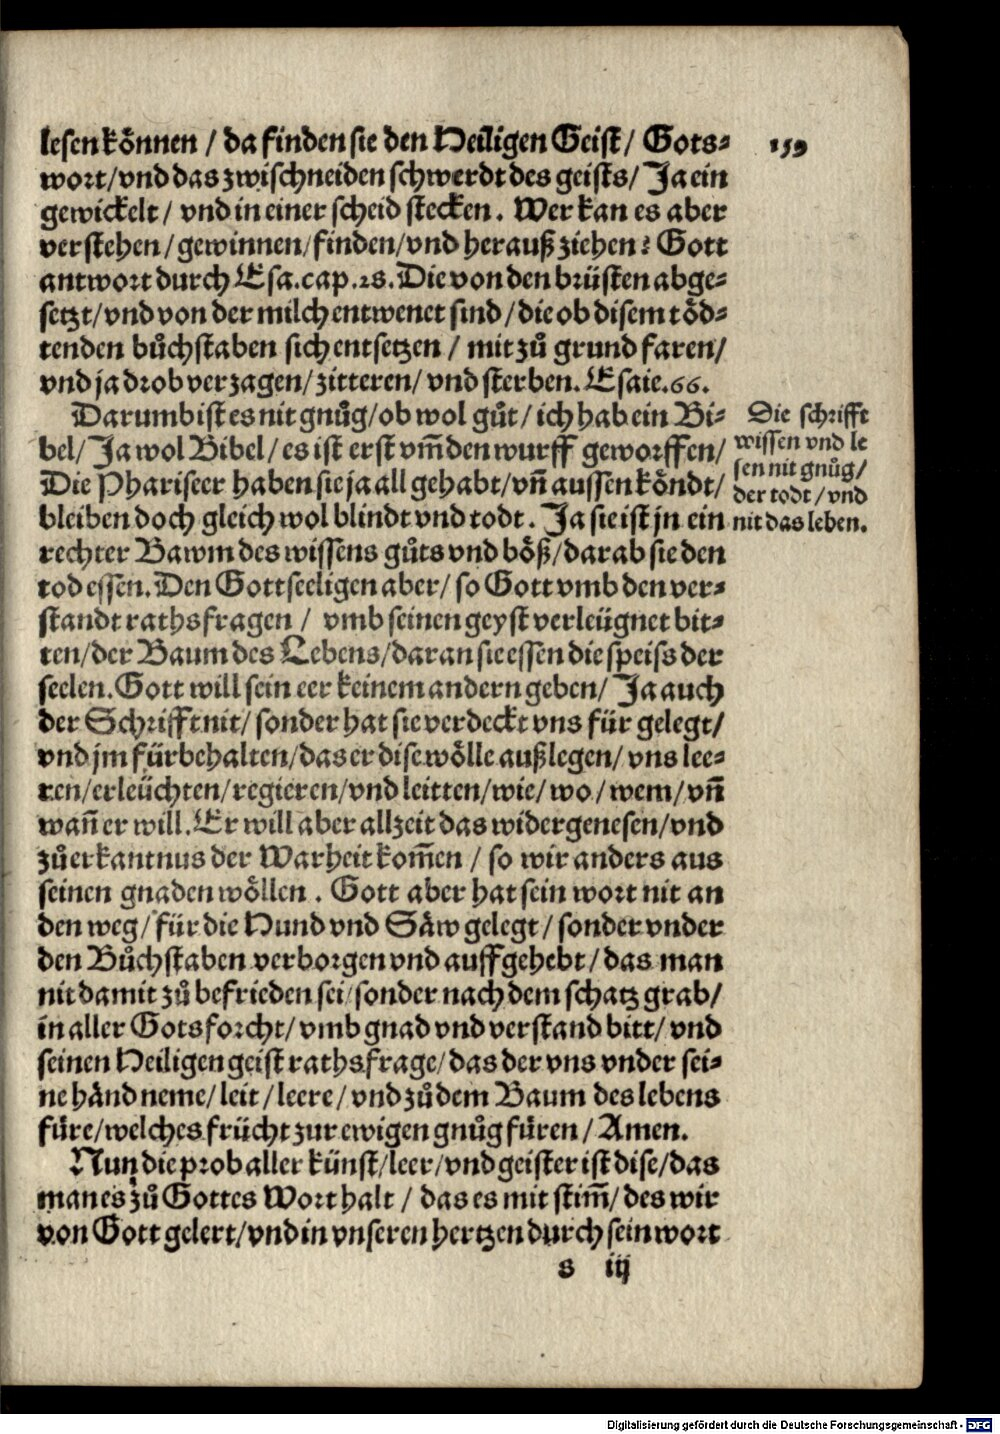 159
lesen koͤnnen / da finden sie den Heiligen Geist / Gots⸗
wort / vnd das zwischneiden schwerdt des geists / Ja ein
gewickelt / vnd in einer scheid stecken. Wer kan es aber
verstehen / gewinnen / finden / vnd herauß ziehen? Gott
antwort durch Esa. cap. 28. Die von den brüsten abge⸗
setzt / vnd von der milch entwenet sind / die ob disem toͤd⸗
tenden buͦchstaben sich entsetzen / mit zuͦ grund faren /
vnd ja drob verzagen / zitteren / vnd sterben. Esaie. 66.
Darumb ist es nit gnuͦg / ob wol guͦt / ich hab ein Bi⸗
bel / Ja wol Bibel / es ist erst vm̃ den wurff geworffen /
Die Phariseer haben sie ja all gehabt / vñ aussen koͤndt /
bleiben doch gleich wol blindt vnd todt. Ja sie ist jn ein
rechter Bawm des wissens guͦts vnd boͤß / darab sie den
tod essen. Den Gottseeligen aber / so Gott vmb den ver⸗
standt rathsfragen / vmb seinen geyst verleügnet bit⸗
ten / der Baum des Lebens / daran sie essen die speiss der
seelen. Gott will sein eer keinem andern geben / Ja auch
der Schrifft nit / sonder hat sie verdeckt vns für gelegt /
vnd jm fürbehalten / das er dise woͤlle außlegen / vns lee⸗
ren / erleüchten / regieren / vnd leitten / wie / wo / wem / vñ
wañ er will. Er will aber allzeit das wider genesen / vnd
zuͦ erkantnus der Warheit kom̃en / so wir anders aus
seinen gnaden woͤllen. Gott aber hat sein wort nit an
den weg / für die Hund vnd Saͤw gelegt / sonder vnder
den Buͦchstaben verborgen vnd auffgehebt / das man
nit damit zuͦ befrieden sei / sonder nach dem schatz grab /
in aller Gotsforcht / vmb gnad vnd verstand bitt / vnd
seinen Heiligen geist rathsfrage / das der vns vnder sei⸗
ne haͤnd neme / leit / leere / vnd zuͦ dem Baum des lebens
fuͤre / welches frücht zur ewigen gnuͦg fuͤren / Amen.
Nun die prob aller künst / leer / vnd geister ist dise / das
man es zuͦ Gottes Wort halt / das es mit stim̃ / des wir
von Gott gelert / vnd in vnseren hertzen durch sein wort
s iij
Die schrifft
wissen vnd le
sen nit gnuͦg /
der todt / vnd
nit das leben.
Digitalisierung gefördert durch die Deutsche Forschungsgemeinschaft - DFG